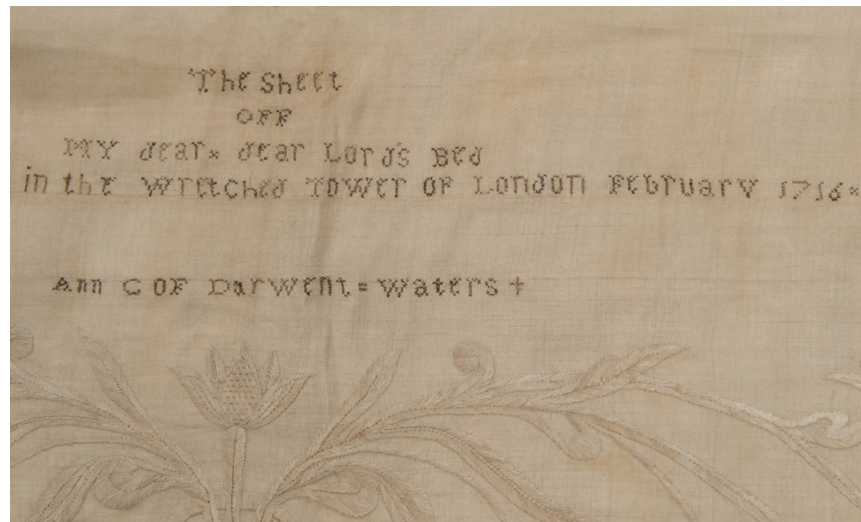 The sheet
OFF
MY dear× dear Lord's Bed
in the Wretched Tower OF London February 1716×
Ann C OF Darwent=Waters+